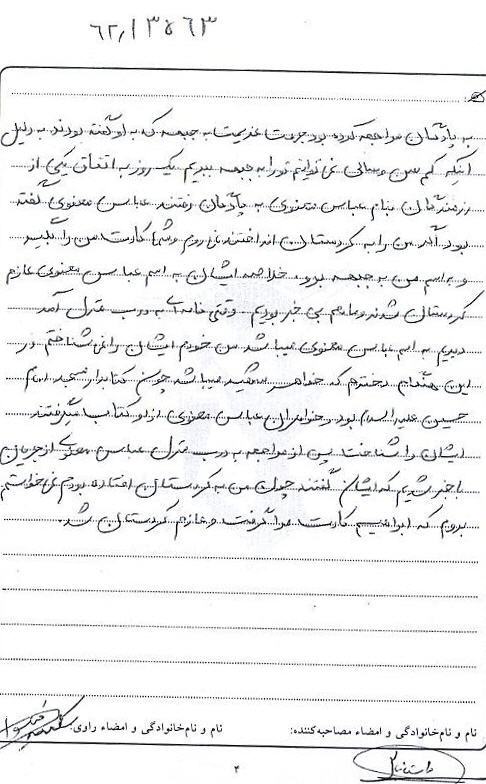 ۶۲,۱۳۵۶۳
به پادگان مراجعه کرده بود جهت عزیمت به جبهه که به او گفته بودند به دلیل
اینکه کم سن و سالی نمی توانیم تو را به جبهه ببریم یک روز به اتفاق یکی از
رزمندگان بنام عباس معنوی به پادگان رفتند عباس معنوی گفته
بود اگر من را به کردستان انداختند نمی روم و شما کارت من را بگیرید
و به اسم من به جبهه برو. خلاصه ایشان به اسم عباس معنوی عازم
کردستان شدند و ما هم بی خبر بودیم وقتی نامه ای به درب منزل آمد
دیدیم به اسم عباس معنوی میباشد من خودم ایشان را نمی شناختم در
این هنگام دخترم که خواهر شهید میباشد چون کتابدار مسجد امام
حسین علیه السلام بود خواهران عباس معنوی از او کتاب میگرفتند
ایشان را شناخت پس از مراجعه به درب منزل عباس معنوی از جریان
با خبر شدیم که ایشان گفتند چون من به کردستان افتاده بودم نمی خواستم
بروم که ابراهیم کارت مرا گرفت و عازم کردستان شد.
نام و نام خانوادگی و امضاء مصاحبه کننده: نام و نام خانوادگی و امضاء راوی:
۴